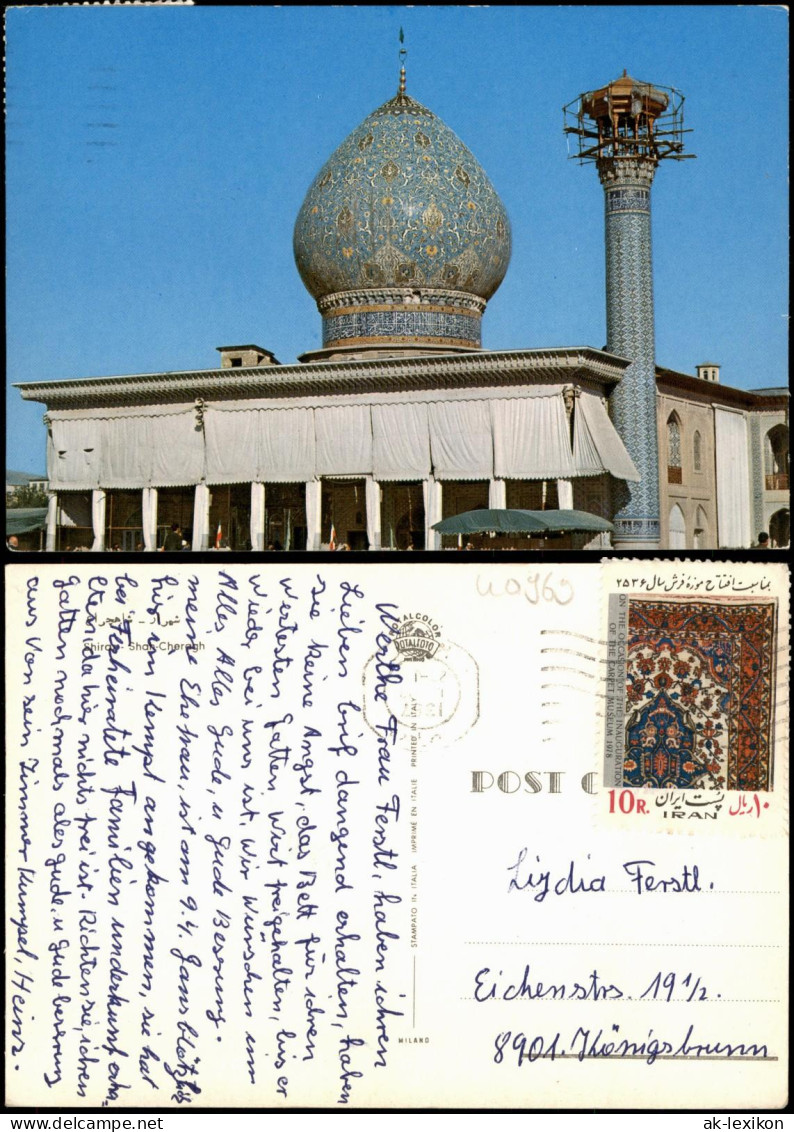 40969
شیراز - شاهچراغ
Shiraz - Shah-Cheragh
Werthe Frau Ferstl, haben ichren
Lieben brif dangend erhalten, haben
sie keine Angst, das Bett für ichren
Wertesten Gatten, Wirt freigehalten, bis er
wieder bei uns ist. Wir Wünschen im
Alles Alles Gude, u Gude Besrung.
meine Ehefrau, ist am 9.4. Gans blötzlich
hir im Kempt angekommen, sie hat
bei Ferheiratete Familien underkunft
da hir nichts frei ist. Richten sie, ichren
Gatten nochmals ales gude, u gude besrung
aus von sein Zimmer Kumpel, Heinz.
ROTALCOLOR
ROTALFOTO
MILANO
STAMPATO IN ITALIA IMPRIMÉ EN ITALIE PRINTED IN ITALY
POST C
بمناسبت افتتاح موزه فرش سال ۲۵۳۶
ON THE OCCASION OF THE INAUGURATION
OF THE CARPET MUSEUM 1978
10 R. پست ایران ۱۰ ریال
IRAN
Lizdia Ferstl.
Eichenstrs. 19 1/2.
8901. Königsbrunn
www.ak-ansichtskarten.de
ak-lexikon